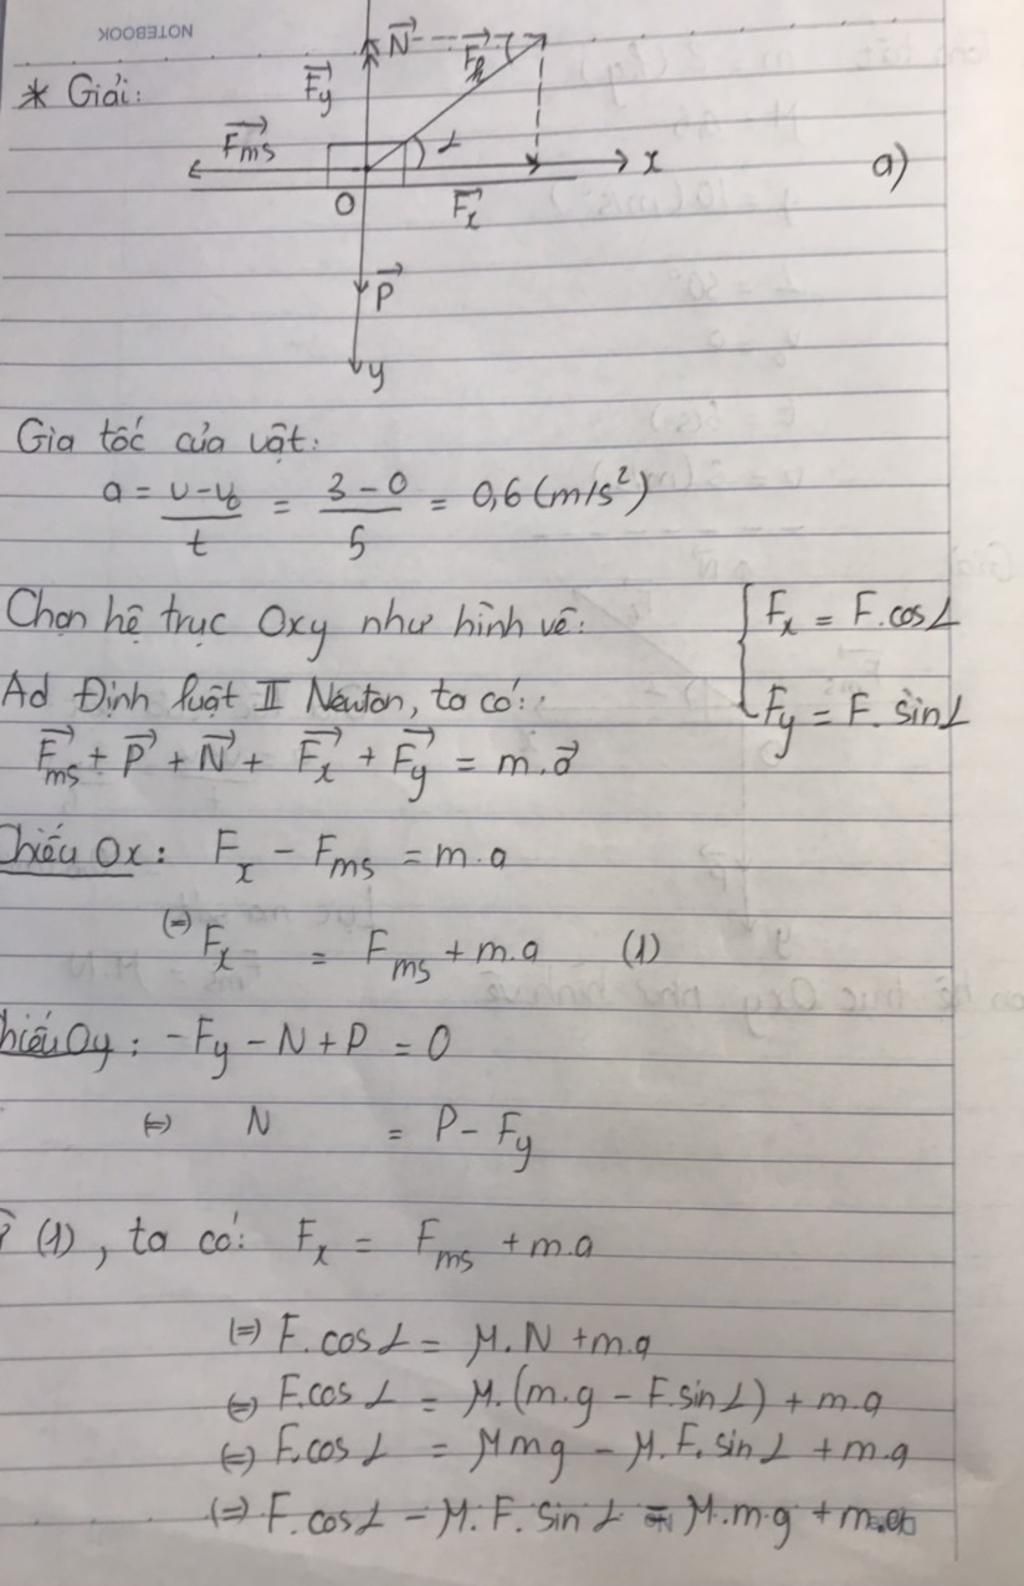 NOTEBOOK
* Giải:
N
Fy
Fk
Fms
α
x
a)
O
Fx
P
y
Gia tốc của vật:
a = v-v₀/t = 3-0/5 = 0,6 (m/s²)
Chọn hệ trục Oxy như hình vẽ:
Fx = F.cosα
Fy = F.sinα
Ad Định luật II Newton, ta có:
Fms + P + N + Fx + Fy = m.a
Chiếu Ox: Fx - Fms = m.a
(=) Fx = Fms + m.a (1)
Chiếu Oy: -Fy - N + P = 0
(=) N = P - Fy
(1), ta có: Fx = Fms + m.a
(=) F.cosα = μ.N + m.a
(=) F.cosα = μ.(m.g - F.sinα) + m.a
(=) F.cosα = μmg - μ.F.sinα + m.a
(=) F.cosα - μ.F.sinα = μ.m.g + m.a